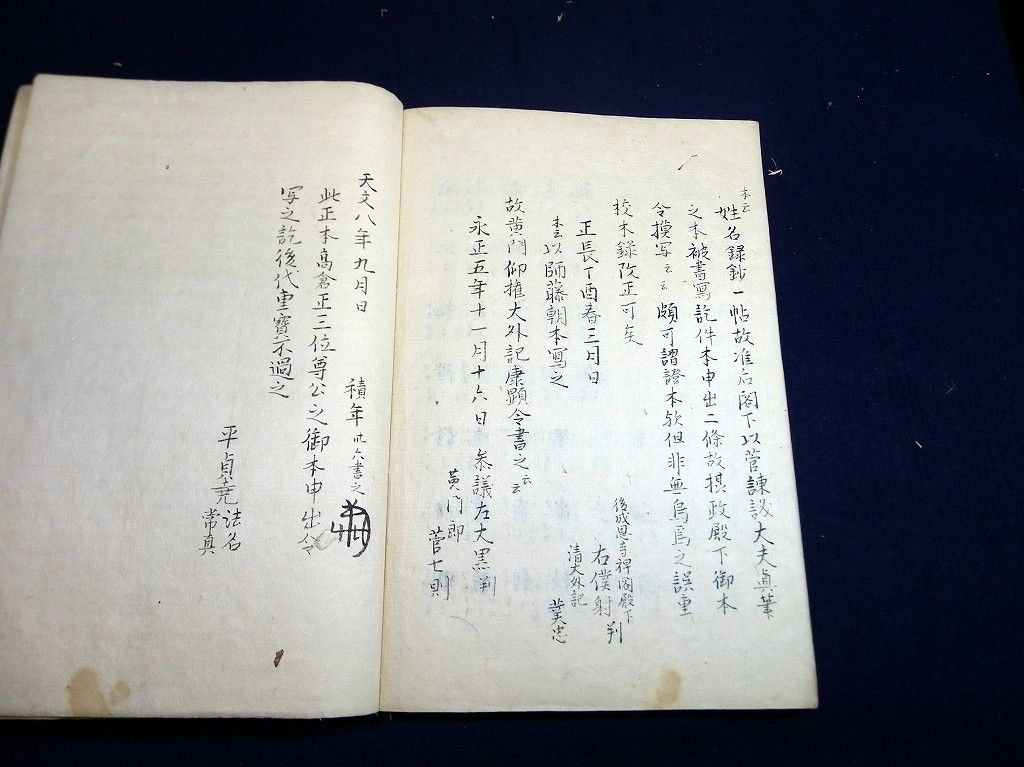 本云
姓名録鈔一帖故准后閣下以菅諫議大夫真筆
之本被書寫訖件本申出二條故摂政殿下御本
令摸写云云頗可謂證本欤但非無烏焉之誤重
校本録改正可矣
正長丁酉春三月日
後成恩寺禅閣殿下
右僕射判
清大外記
業忠
本云以師藤朝本寫之
故黄門仰権大外記康顕令書之云云
永正五年十一月十六日 参議左大黒判
黄門郎
菅七則
天文八年九月日
積年廿六書之
此正本高倉正三位尊公之御本申出令
写之訖後代重寶不過之
平貞尭法名
常真